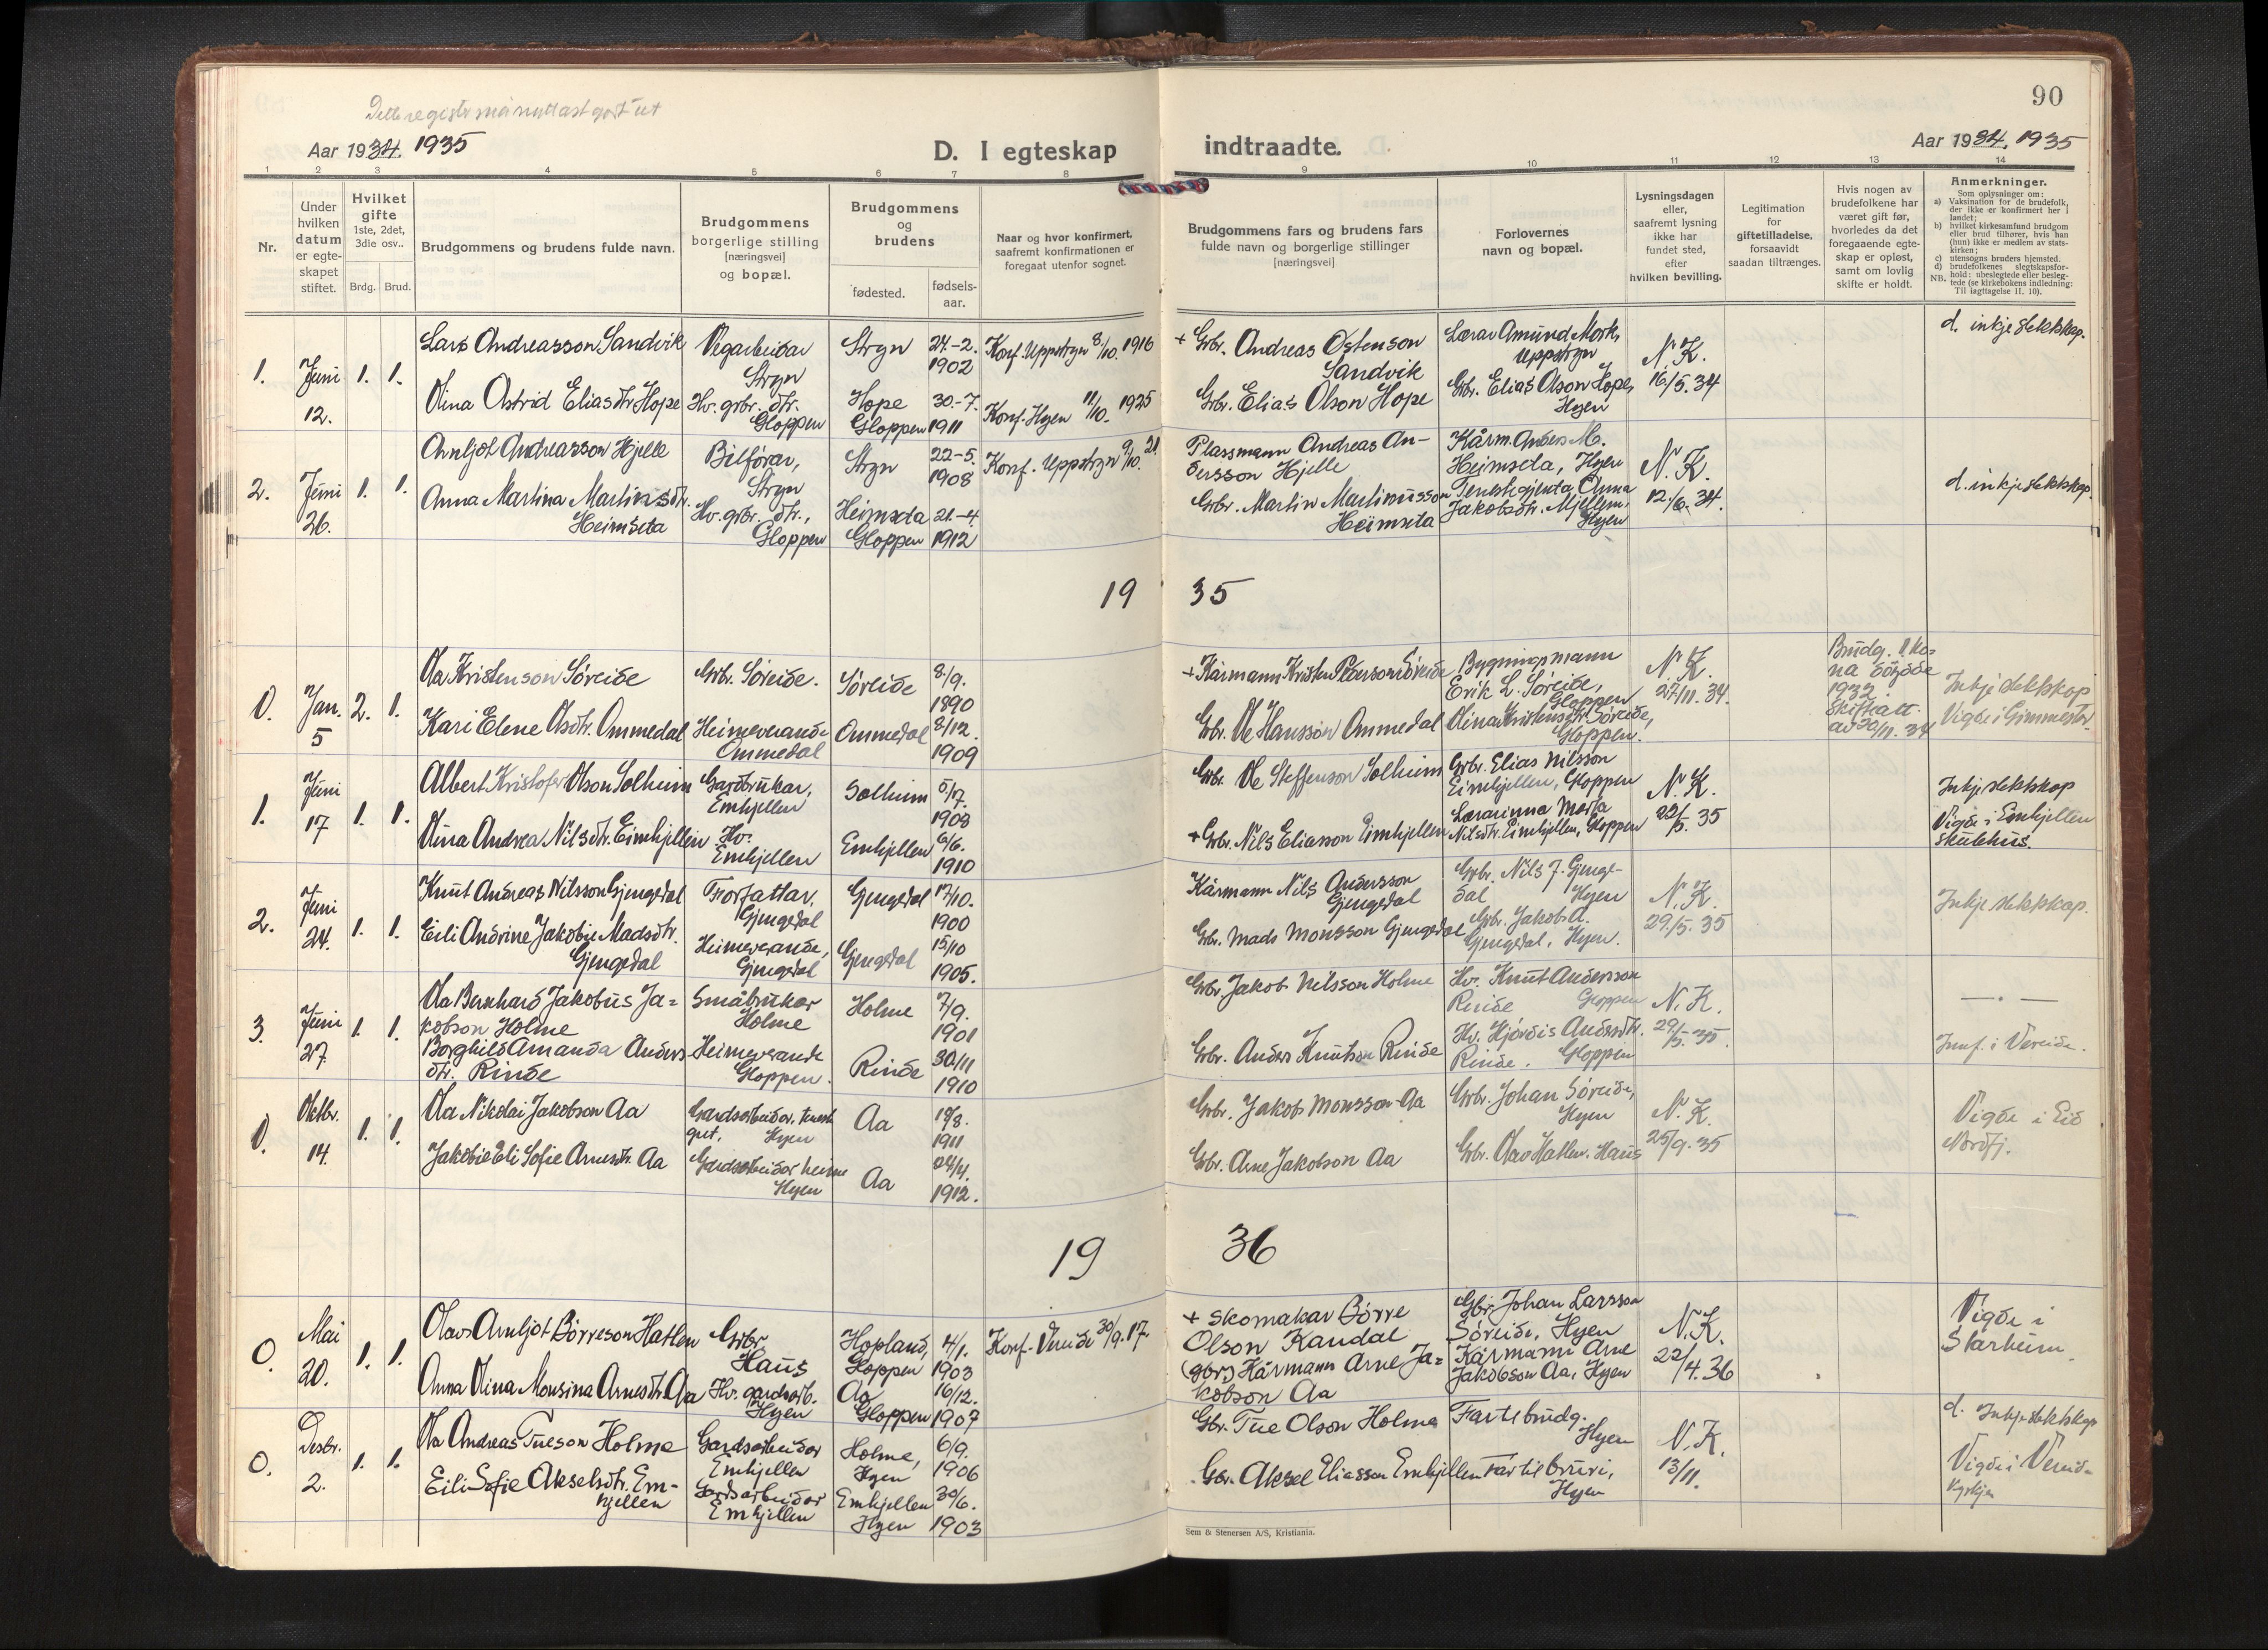 90
Aar 1934. 1935
D. I egteskap indtraadte.
Aar 1934, 1935
1 2 3 4 5 6 7 8 9 10 11 12 13 14
Nr.
Under hvilken datum er egte-skapet stiftet.
Hvilket gifte 1ste, 2det, 3die osv..
Brdg. Brud.
Brudgommens og brudens fulde navn.
Brudgommens borgerlige stilling [næringsvei] og bopæl.
Brudgommens og brudens
fødested.
fødsels-aar.
Naar og hvor konfirmert, saafremt konfirmationen er foregaat utenfor sognet.
Brudgommens fars og brudens fars fulde navn og borgerlige stillinger [næringsvei]
Forlovernes navn og bopæl.
Lysningsdagen eller, saafremt lysning ikke har fundet sted, efter hvilken bevilling.
Legitimation for giftetilladelse, forsaavidt saadan tiltrænges.
Hvis nogen av brudefolkene har været gift før, hvorledes da det foregaaende egte-skap er opløst, samt om lovlig skifte er holdt.
Anmerkninger.
Som oplysninger om:
a) Vaksination for de brudefolk, der ikke er konfirmert her i landet;
b) hvilket kirkesamfund brudgom eller brud tilhører, hvis han (hun) ikke er medlem av stats-kirken;
c) utensogns bruders hjemsted.
d) brudefolkenes slegtskapsfor-hold: ubeslegtede eller besleg-tede (se kirkebokens indledning:
NB. Til iagttagelse II. 10).
1. Juni 12. 1. 1.
Lars Andreasson Sandvik
Vegarbeidar Stryn
Stryn
24.-2. 1902
Konf. Uppstryn 8/10. 1916
+ Grbr. Andreas Østenson Sandvik
Lærar Amund Mork, Uppstryn
N. K. 16/5. 34
d. inkje slektskap.
Olina Astrid Eliasdtr Hope
Hv. grbr. dtr. Gloppen
Hope Gloppen
30.-7. 1911
Konf. Hyen 11/10. 1925
Grbr. Elias Olson Hope
Grbr. Elias Olson Hope, Hyen
2. Juni 26. 1. 1.
Arnljot Andreasson Hjelle
Bilførar, Stryn
Stryn
22-5. 1908
Konf. Uppstryn 9/10. 21.
Plassmann Andreas An-
dersson Hjelle
Kårm. Anders M. Heimseta, Hyen
N. K. 12./6. 34.
d. inkje slektskap.
Anna Martina Martinsdtr. Heimseta
Hv. grbr. dtr., Gloppen
Heimseta Gloppen
21.-4. 1912
Grbr. Martin Martinusson Heimseta
Tenestgjenta Anna Jakobsdtr. Mjellem, Hyen
19 35
0. Jan. 5 2. 1.
Ola Kristenson Søreide
Grbr. Søreide.
Søreide
8/9. 1890
+ Kårmann Kristen Pederson Søreide
Bygningsmann Erik L. Søreide, Gloppen
N. K. 27/11. 34.
Brudg. 1. ko-
na döydde
1932.
Skifteatt.
ad 20/11. 34
Inkje slektskap
Vigde i Gimmestad
Kari Elene Olsdtr. Ommedal
Heimeverande Ommedal
Ommedal
8/12. 1909
Grbr. Ole Hansson Ommedal
Olina Kristensdtr. Søreide, Gloppen.
1. Juni 17 1. 1.
Albert Kristofer Olson Solheim
Gardbrukar, Emhjellen
Solheim
5/7. 1908
Grbr. Ole Steffenson Solheim
Grbr. Elias Nilsson Eimhjellen, Gloppen
N. K. 22/5. 35
Inkje slektskap
Vigde i Emhjellen
skulehus.
Olina Andrea Nilsdtr. Eimhjellen
Hv. Emhjellen
Emhjellen
6/6. 1910
+ Grbr. Nils Eliasson Eimhjellen
Lærarinna Marta Nilsdtr. Eimhjellen, Gloppen
2. Juni 24. 1. 1.
Knut Andreas Nilsson Gjengedal
Forfattar, Gjengedal
Gjengedal
17/10. 1900
Kårmann Nils Andersson Gjengedal
Grbr. Nils J. Gjenge-
dal Hyen
N. K. 29/5. 35
Inkje slektskap.
Eili Andrine Jakobie Madsdtr. Gjengedal
Heimeverande, Gjengedal
Gjengedal
15/10 1905.
Grbr. Mads Monsson Gjengedal
Grbr. Jakob A. Gjengedal, Hyen.
3. Juni 27. 1. 1.
Ola Bernhard Jakobus Ja=
kobson Holme
Småbrukar Holme
Holme
7/9. 1901
Grbr. Jakob Nilsson Holme
Hv. Knut Andersson Rinde Gloppen
N. K. 29/5. 35.
— . —
Borghild Amanda Anders-
dtr. Rinde
Heimeverande Gloppen.
Rinde
30/11 1910
Grbr. Anders Knutson Rinde
Hv. Hjørdis Andersdtr. Rinde. Gloppen
Innf. i Vereide.
0. Oktbr. 14. 1. 1.
Ola Nikolai Jakobson Aa
Gardsarbeidar, Hyen
Aa
19/8. 1911
Grbr. Jakob Monsson Aa
Grbr. Johan Søreide, Hyen
N. K. 25/9. 35
Vigde i Eid
Nordfj.
Jakobie Eli Sofie Arnesdtr. Aa
Gardsarbeidar heime Hyen
Aa
24/4. 1912.
Grbr. Arne Jakobson Aa
Grbr. Olav Hatlen. Haus
19 36
0. Mai 20. 1. 1.
Olav Arnljot Børreson Hatlen
Grbr Haus
Hopland, Gloppen
4/1. 1903
Konf. Vereide 30/9. 17.
+ Skomakar Børre
Olson Kandal
Gbr. Johan Larsson Søreide, Hyen
N. K. 22/4. 36
Vigde i
Starheim.
Anna Olina Monsina Arnesdtr. Aa
Hv. gardsarb. Hyen
Aa Gloppen
16/12. 1907
(gbr.) Kårmann Arne Ja=
kobson Aa
Kårmann Arne Jakobson Aa, Hyen
0. Desbr. 2. 1. 1.
Ola Andreas Tueson Holme
Gardsarbeidar Emhjellen
Holme, Hyen
6/9. 1906
Gbr. Tue Olson Holme
Far til brudg. Hyen
N. K. 13/11.
d. Inkje slektskap
Vigde i Vereid-
kyrkja
Eili Sofie Akselsdtr. Em-
hjellen
Gardsarbeidar Emhjellen
Emhjellen Hyen
30/6. 1903
Gbr. Aksel Eliasson Emhjellen
Far til bruri, Hyen
Sem & Stenersen A/S, Kristiania.